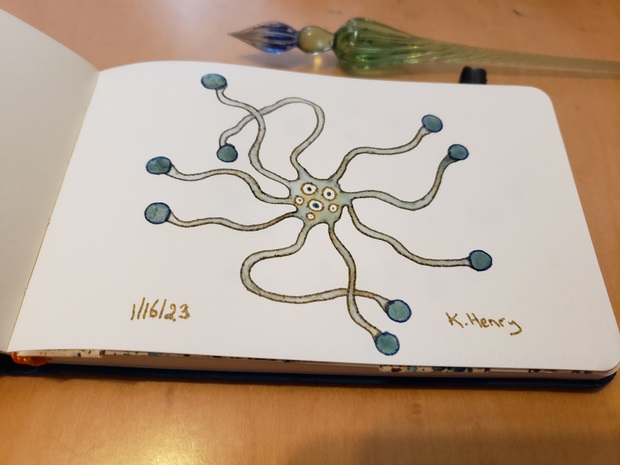 1/16/23
K. Henry